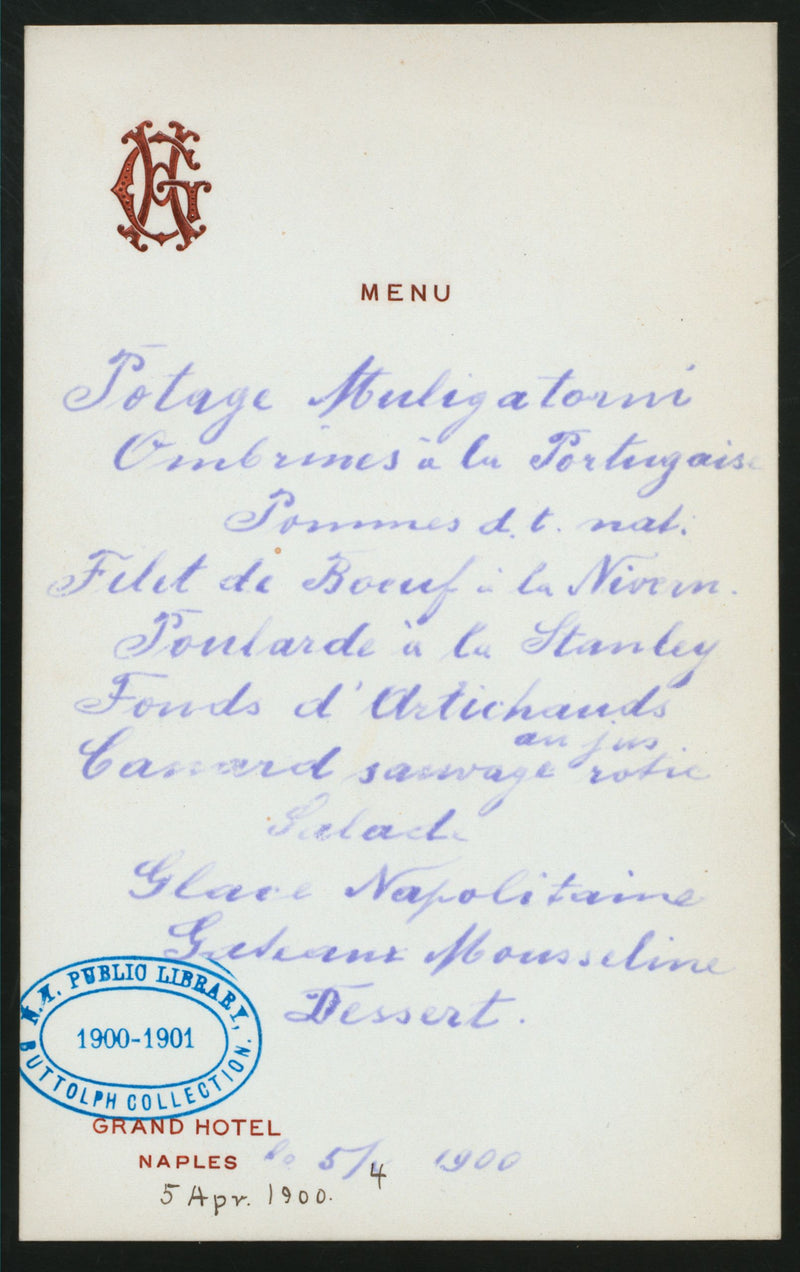 GH
MENU
Potage Muligatorni
Ombrines à la Portugaise
Pommes d. t. nat.
Filet de Boeuf à la Nivern.
Poularde à la Stanley
Fonds d'Artichauds
au jus
Canard sauvage rotie
Salade
Glace Napolitaine
Gateaux Mousseline
Dessert.
N.Y. PUBLIC LIBRARY,
1900-1901
BUTTOLPH COLLECTION.
GRAND HOTEL
NAPLES le 5/4 1900
5 Apr. 1900.